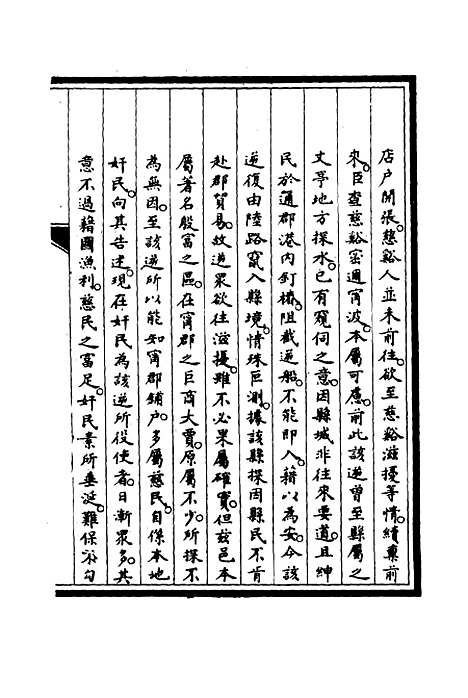 店户開張。慈谿人並未前往。欲至慈谿滋擾等情。續稟前
來。臣查慈谿密邇甯波。本屬可慮。前此該逆曾至縣屬之
丈亭地方探水。已有窺伺之意。因縣城非往來要道。且紳
民於通郡港内釘樁。阻截逆船。不能即入。藉以為安。今該
逆復由陸路竄入縣境。情殊叵測。據該縣探因縣民不肯
赴郡貿易。故逆眾欲往滋擾。雖不必果屬確實。但兹邑本
屬著名殷富之區。在甯郡之巨商大賈。原屬不少。所探不
為無因。至該逆所以能知甯郡鋪户。多屬慈民。自係本地
奸民。向其告述。現在奸民為該逆所役使者。日漸眾多。其
意不過藉圖漁利。慈民之富足。奸民素所垂涎。難保不勾